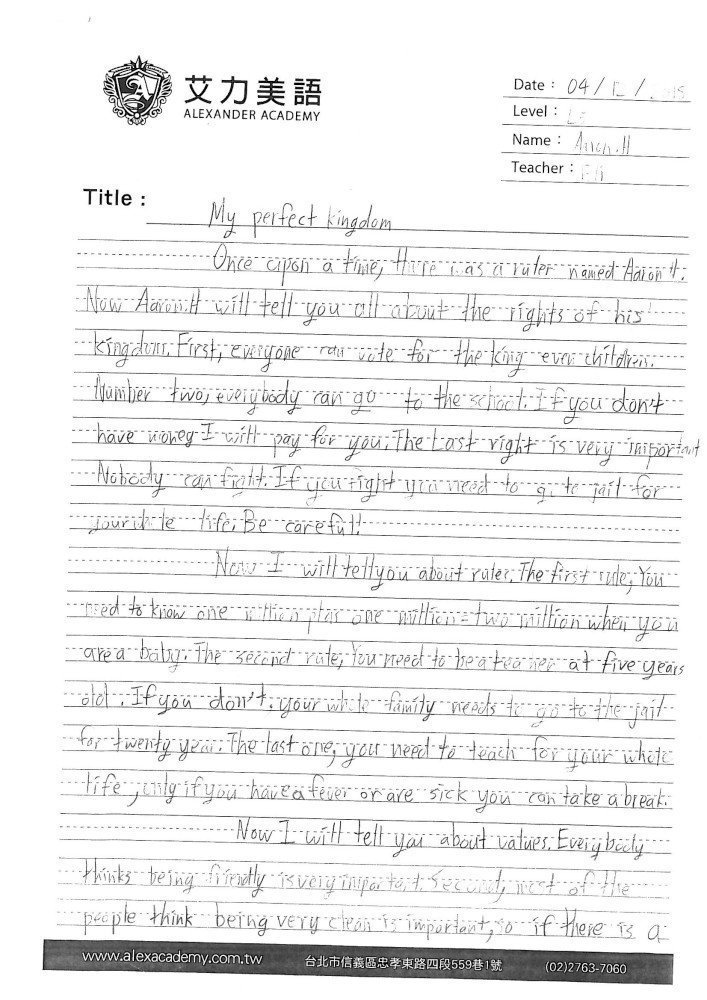 艾力美語
ALEXANDER ACADEMY
Date : 04 / 12 /
Level :
Name : Aaron.H
Teacher :
Title :
My perfect kingdom
Once upon a time, there was a ruler named Aaron H.
Now Aaron.H will tell you all about the rights of his
kingdom. First, everyone can vote for the king even children.
Number two, everybody can go to the school. If you don't
have money I will pay for you. The Last right is very important
Nobody can fight. If you fight you need to go to jail for
your whole life. Be careful!
Now I will tell you about rules. The first rule, You
need to know one million plus one million = two million when you
are a baby. The second rule, You need to be a teacher at five years
old. If you don't, your whole family needs to go to the jail
for twenty year. The last one, you need to teach for your whole
life, only if you have a fever or are sick you can take a break.
Now I will tell you about values. Everybody
thinks being friendly is very important. Second, most of the
people think being very clean is important, so if there is a
www.alexacademy.com.tw 台北市信義區忠孝東路四段559巷1號 (02)2763-7060